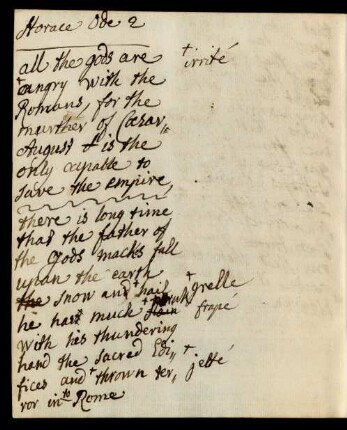 Horace Ode 2
all the gods are + irrité
+angry with the
Romans, for the
murther of Cæsar,,
August + is the
only capable to
save the empire,
there is long time
that the father of
the Gods macks fall
upon the earth
the snow and + hail + grelle
he has much + struk frapé
with his thundering
hand the sacred Edi,, + jetté
fices and + thrown ter,,
ror into Rome